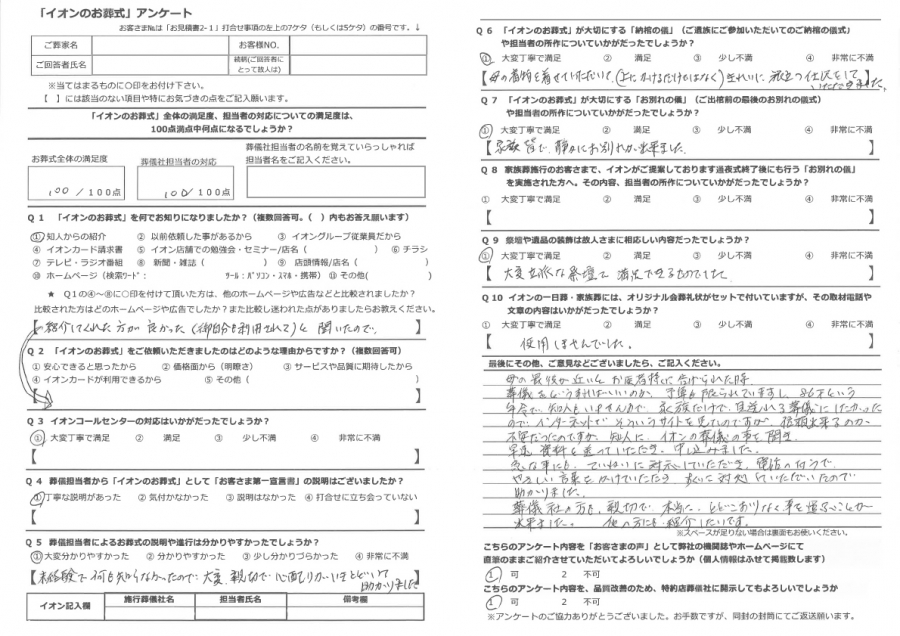 「イオンのお葬式」アンケート
お客さま№は「お見積書2-1」打合せ事項の左上の7ケタ（もしくは5ケタ）の番号です。↓
ご葬家名 お客様NO.
ご回答者氏名 続柄(ご回答者にとって故人は)
※当てはまるものに〇印をお付け下さい。
【 】には該当のない項目や特にお気づきの点をご記入願います。
「イオンのお葬式」全体の満足度、担当者の対応についての満足度は、
100点満点中何点になるでしょうか？
お葬式全体の満足度 葬儀社担当者の対応 葬儀社担当者の名前を覚えていらっしゃれば
担当者名をご記入ください。
100 / 100点 100 / 100点
Q 1 「イオンのお葬式」を何でお知りになりましたか？（複数回答可。( ）内もお答え願います）
① 知人からの紹介 ② 以前依頼した事があるから ③ イオングループ従業員だから
④ イオンカード請求書 ⑤ イオン店舗での勉強会・セミナー/店名（ ） ⑥ チラシ
⑦ テレビ・ラジオ番組 ⑧ 新聞・雑誌（ ） ⑨ 店頭情報/店名（ ）
⑩ ホームページ（検索ワード： ツール：パソコン・スマホ・携帯） ⑪ その他( )
★ Q１の④～⑧に〇印を付けて頂いた方は、他のホームページや広告などと比較されましたか？
比較された方はどのホームページや広告でしたか？また比較し迷われた点がありましたらお教えください。
【紹介してくれた方が良かった（御自分も利用されて）と聞いたので。 】
Q 2 「イオンのお葬式」をご依頼いただきましたのはどのような理由からですか？（複数回答可）
① 安心できると思ったから ② 価格面から（明瞭さ） ③ サービスや品質に期待したから
④ イオンカードが利用できるから ⑤ その他（ ）
【 】
Q 3 イオンコールセンターの対応はいかがだったでしょうか？
① 大変丁寧で満足 ② 満足 ③ 少し不満 ④ 非常に不満
【 】
Q 4 葬儀担当者から「イオンのお葬式」として「お客さま第一宣言書」の説明はございましたか？
① 丁寧な説明があった ② 気付かなかった ③ 説明はなかった ④ 打合せに立ち会っていない
【 】
Q 5 葬儀担当者によるお葬式の説明や進行は分かりやすかったでしょうか？
① 大変分かりやすかった ② 分かりやすかった ③ 少し分かりづらかった ④ 非常に不満
【未経験で何も知らなかったので大変親切で心配りがいきとどいて
助かりました】
イオン記入欄 施行葬儀社名 担当者氏名 備考欄
Q 6 「イオンのお葬式」が大切にする「納棺の儀」（ご遺族にご参加いただいてのご納棺の儀式）
や担当者の所作についていかがだったでしょうか？
① 大変丁寧で満足 ② 満足 ③ 少し不満 ④ 非常に不満
【母の着物を着せていただいて、(上にかけるだけではなく) きれいに旅立つ仕度をして
いただきました。】
Q 7 「イオンのお葬式」が大切にする「お別れの儀」（ご出棺前の最後のお別れの儀式）
や担当者の所作についていかがだったでしょうか？
① 大変丁寧で満足 ② 満足 ③ 少し不満 ④ 非常に不満
【家族皆で、静かにお別れが出来ました。 】
Q 8 家族葬施行のお客さまで、イオンがご提案しております通夜式終了後にも行う「お別れの儀」
を実施された方へ。その内容、担当者の所作についていかがだったでしょうか？
① 大変丁寧で満足 ② 満足 ③ 少し不満 ④ 非常に不満
【 】
Q 9 祭壇や遺品の装飾は故人さまに相応しい内容だったでしょうか？
① 大変丁寧で満足 ② 満足 ③ 少し不満 ④ 非常に不満
【大変立派な祭壇で満足できるものでした。 】
Q 10 イオンの一日葬・家族葬には、オリジナル会葬礼状がセットで付いていますが、その取材電話や
文章の内容はいかがだったでしょうか？
① 大変丁寧で満足 ② 満足 ③ 少し不満 ④ 非常に不満
【使用しませんでした。 】
最後にその他、ご意見などございましたら、ご記入ください。
母の最後が近いとお医者様に告げられた時
葬儀をどうすればいいのか、予算も限られていますし、86才という
年令で、知人もいませんので、家族だけで見送れる葬儀にしたかった
ので、インターネットでそういうサイトを見たのですが、信頼出来るのか
不安だったのですが、知人にイオンの葬儀の事を聞き
早速資料を送っていただき、申し込みました。
急な事にも、ていねいに対応していただき、電話の向うで
やさしい言葉をかけていただき、すぐに対処していただいたので
助かりました。
葬儀社の方も、親切で、本当に、とどこおりなく事を運ぶことが
出来ました。 他の方にも紹介したいです。
※スペースが足りない場合は裏面もお使いください。
こちらのアンケート内容を「お客さまの声」として弊社の機関誌やホームページにて
直筆のままご紹介させていただいてよろしいでしょうか（個人情報はふせて掲載致します）
1 可 2 不可
こちらのアンケート内容を、品質改善のため、特約店葬儀社に開示してもよろしいでしょうか
1 可 2 不可
※アンケートのご協力ありがとうございました。お手数ですが、同封の封筒にてご返送願います。